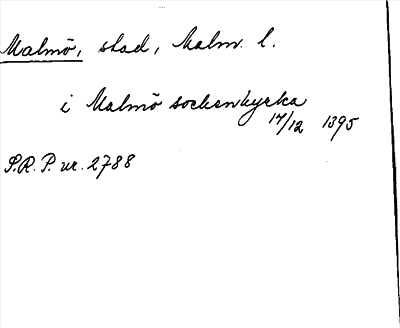 Malmö, stad, Malm. l.
i Malmö sockenkyrka
17/12 1395
S.R.P. nr. 2788